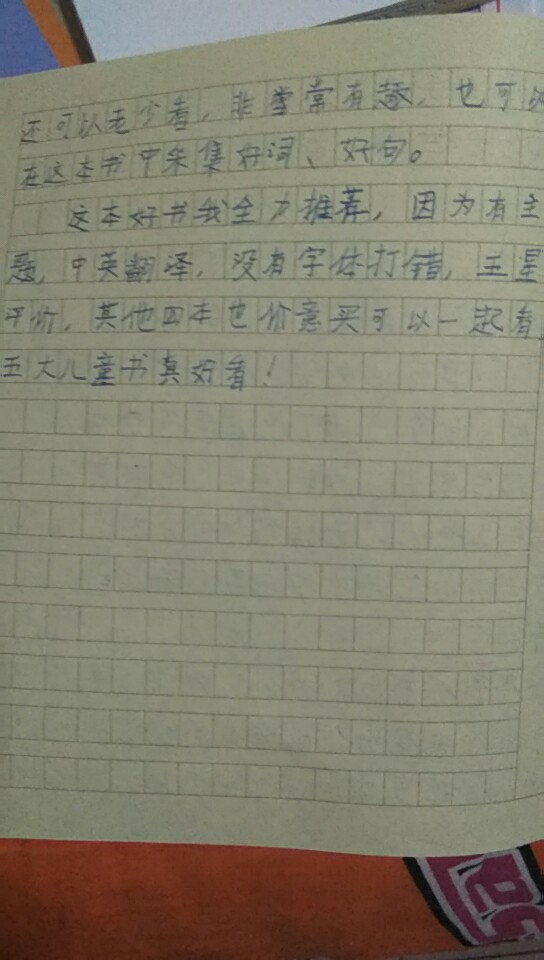 还可以老少看，非常常有趣，也可以
在这本书中采集好词、好句。
这本好书我全力推荐，因为有主
题，中英翻译，没有字体打错，五星
平价，其他四本也价意买可以一起看，
五大儿童书真好看！